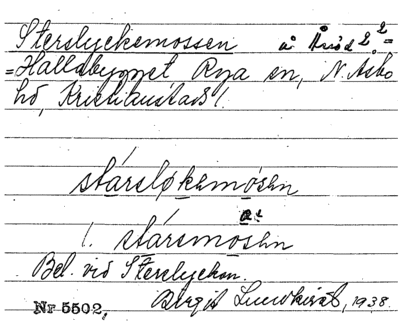 Sterslyckemossen å Åröd 2²=
=Hallabygget Rya sn, N. Åsbo
hd, Kristianstads l.
stársløkemósen
l. stársmosen
Bel. vid Sterslyckan.
Nr 5502, Birgit Lundkvist, 1938.